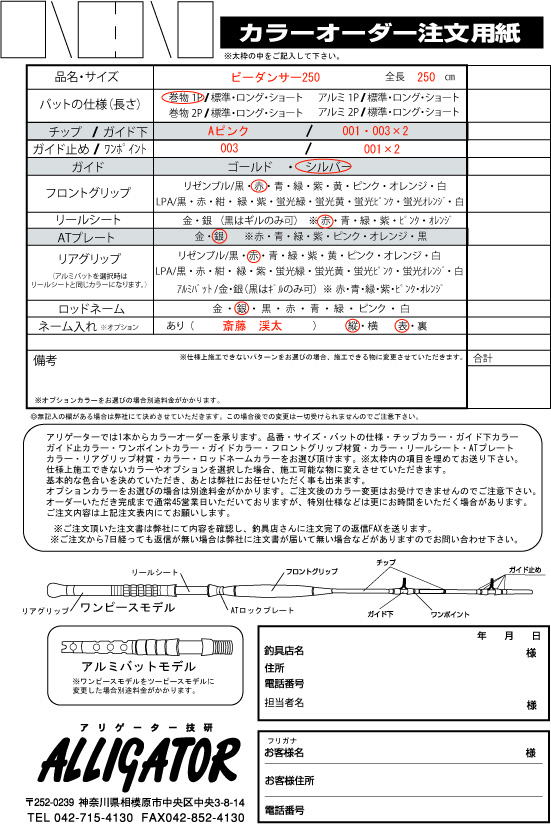 カラーオーダー注文用紙
※太枠の中をご記入して下さい。
品名・サイズ ビーダンサー250 全長 250 cm
バットの仕様(長さ) 巻物 1P/標準・ロング・ショート アルミ 1P/標準・ロング・ショート
巻物 2P/標準・ロング・ショート アルミ 2P/標準・ロング・ショート
チップ / ガイド下 Aピンク / 001・003×2
ガイド止め / ワンポイント 003 / 001×2
ガイド ゴールド ・ シルバー
フロントグリップ リゼンブル/黒・赤・青・緑・紫・黄・ピンク・オレンジ・白
LPA/黒・赤・紺・緑・紫・蛍光緑・蛍光黄・蛍光ピンク・蛍光オレンジ・白
リールシート 金・銀 (黒はギルのみ可) ※赤・青・緑・紫・ピンク・オレンジ
ATプレート 金・銀 ※赤・青・緑・紫・ピンク・オレンジ・黒
リアグリップ リゼンブル/黒・赤・青・緑・紫・黄・ピンク・オレンジ・白
(アルミバットを選択時は
リールシートと同じカラーになります。)
LPA/黒・赤・紺・緑・紫・蛍光緑・蛍光黄・蛍光ピンク・蛍光オレンジ・白
アルミバット/金・銀(黒はギルのみ可) ※ 赤・青・緑・紫・ピンク・オレンジ
ロッドネーム 金・銀・黒・赤・青・緑・ピンク・白
ネーム入れ ※オプション あり ( 斎藤 渓太 ) 縦・横 表・裏
備考 ※仕様上施工できないパターンをお選びの場合、施工できる物に変更させていただきます。 合計
※オプションカラーをお選びの場合別途料金がかかります。
◎無記入の欄がある場合は弊社にて決めさせていただきます。この場合後での変更は一切受けられませんのでご注意下さい。
アリゲーターでは1本からカラーオーダーを承ります。品番・サイズ・バットの仕様・チップカラー・ガイド下カラー
ガイド止カラー・ワンポイントカラー・ガイドカラー・フロントグリップ材質・カラー・リールシート・ATプレート
カラー・リアグリップ材質・カラー・ロッドネームカラーをお選び頂けます。※太枠内の項目を埋めてお送り下さい。
仕様上施工できないカラーやオプションを選択した場合、施工可能な物に変えさせていただきます。
基本的な色合いを決めていただき、あとは弊社にお任せいただく事も出来ます。
オプションカラーをお選びの場合は別途料金がかかります。ご注文後のカラー変更はお受けできませんのでご注意下さい。
オーダーいただき完成まで通常45営業日いただいておりますが、特別仕様などは更にお時間をいただく場合があります。
ご注文内容は上記注文表内にてお願いします。
※ご注文頂いた注文書は弊社にて内容を確認し、釣具店さんに注文完了の返信FAXを送ります。
※ご注文から7日経っても返信が無い場合は弊社に注文書が届いて無い場合などがありますのでお問い合わせ下さい。
リールシート フロントグリップ チップ ガイド止め
リアグリップ ワンピースモデル ATロックプレート ガイド下 ワンポイント
アルミバットモデル
※ワンピースモデルをツーピースモデルに
変更した場合別途料金がかかります。
年 月 日
釣具店名 様
住所
電話番号
担当者名 様
アリゲーター技研
ALLIGATOR
〒252-0239 神奈川県相模原市中央区中央3-8-14
TEL 042-715-4130 FAX042-852-4130
フリガナ
お客様名 様
お客様住所
電話番号